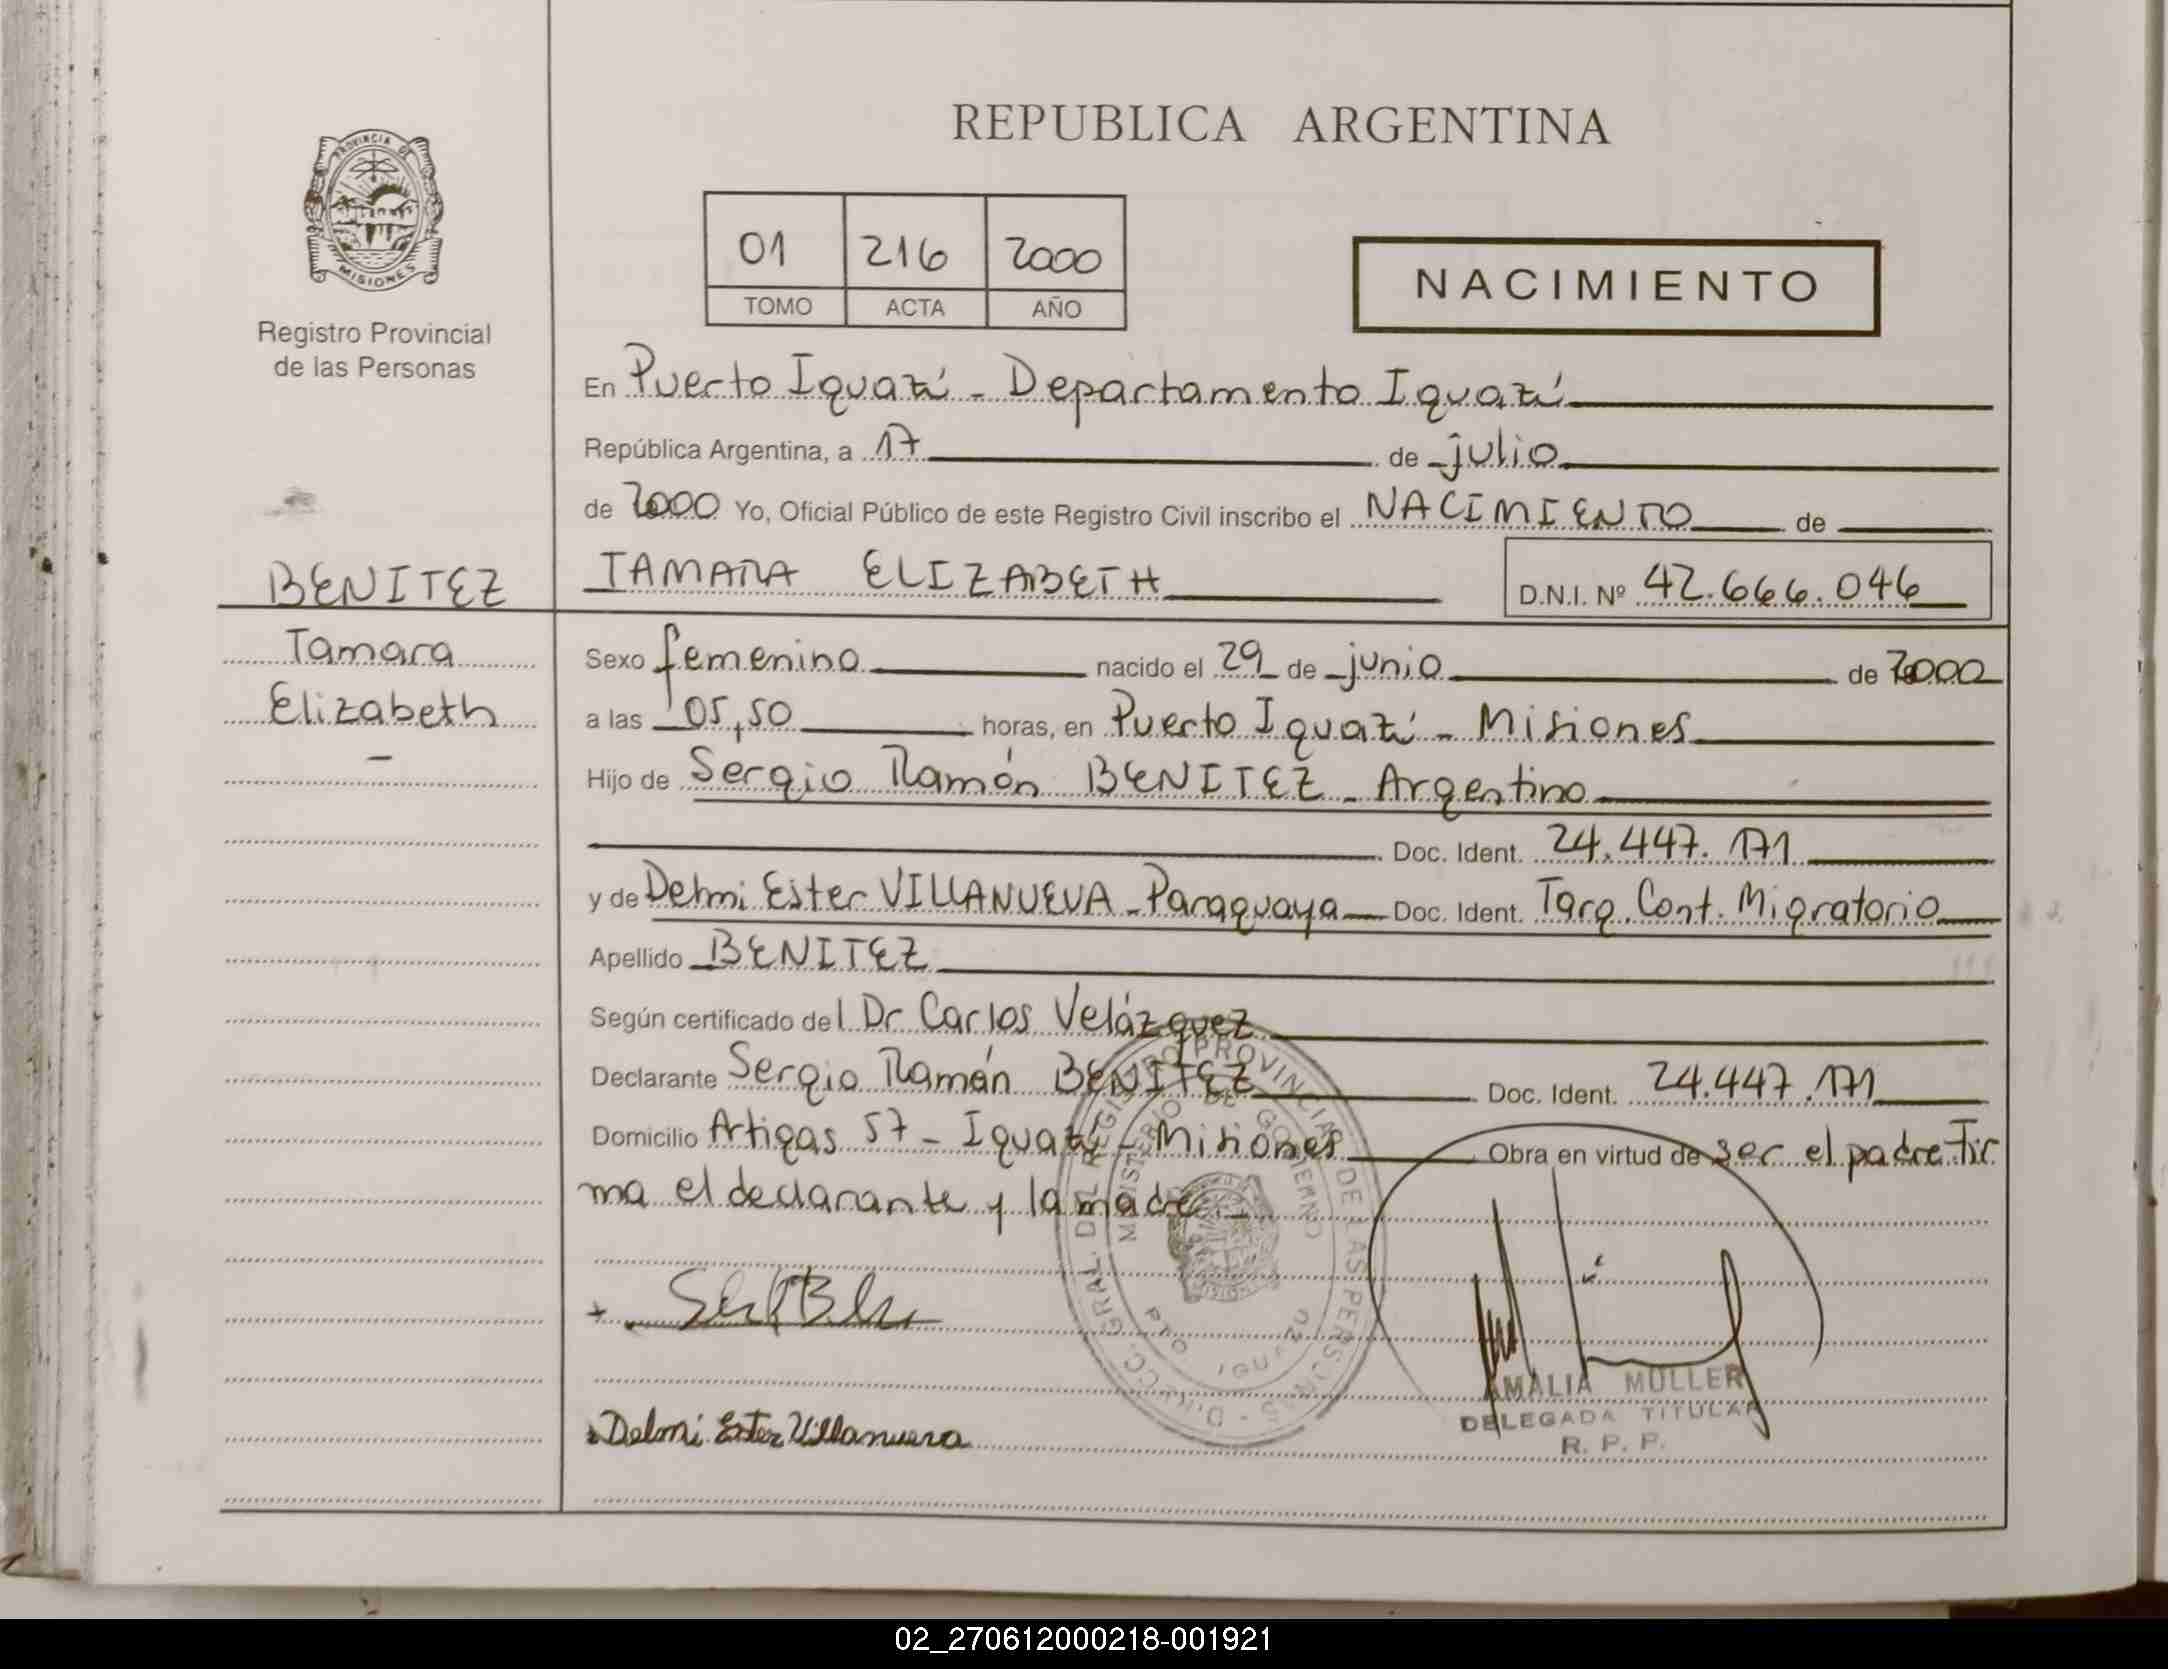 REPUBLICA ARGENTINA
PROVINCIA DE
MISIONES
Registro Provincial
de las Personas
01 216 2000
TOMO ACTA AÑO
NACIMIENTO
En Puerto Iguazú - Departamento Iguazú
República Argentina, a 17 de julio
de 2000 Yo, Oficial Público de este Registro Civil inscribo el NACIMIENTO de
BENITEZ
TAMARA ELIZABETH D.N.I. Nº 42.666.046
Tamara
Elizabeth
Sexo femenino nacido el 29 de junio de 2000
a las 05,50 horas, en Puerto Iguazú - Misiones
Hijo de Sergio Ramón BENITEZ - Argentino
Doc. Ident. 24.447.171
y de Delmi Ester VILLANUEVA - Paraguaya Doc. Ident. Targ. Cont. Migratorio
Apellido BENITEZ
Según certificado del Dr Carlos Velázquez
Declarante Sergio Ramón BENITEZ Doc. Ident. 24.447.171
Domicilio Artigas 57 - Iguazú - Misiones Obra en virtud de ser el padre. Fir
ma el declarante y la madre -
DIRECC. GRAL. DEL REGISTRO PROVINCIAL DE LAS PERSONAS
MINISTERIO DE GOBIERNO
PTO. IGUAZU
Delmi Ester Villanueva
AMALIA MULLER
DELEGADA TITULAR
R. P. P.
02_270612000218-001921